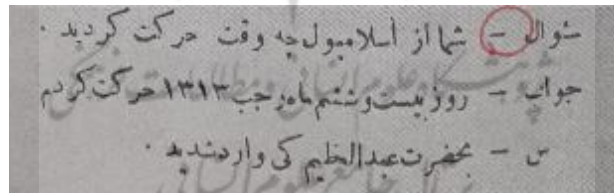 سئوال – شما از اسلامبول چه وقت حرکت کردید .
جواب – روز بیست و ششم ماه رجب ۱۳۱۳ حرکت کردم
س – بحضرت عبدالعظیم کی وارد شدید .